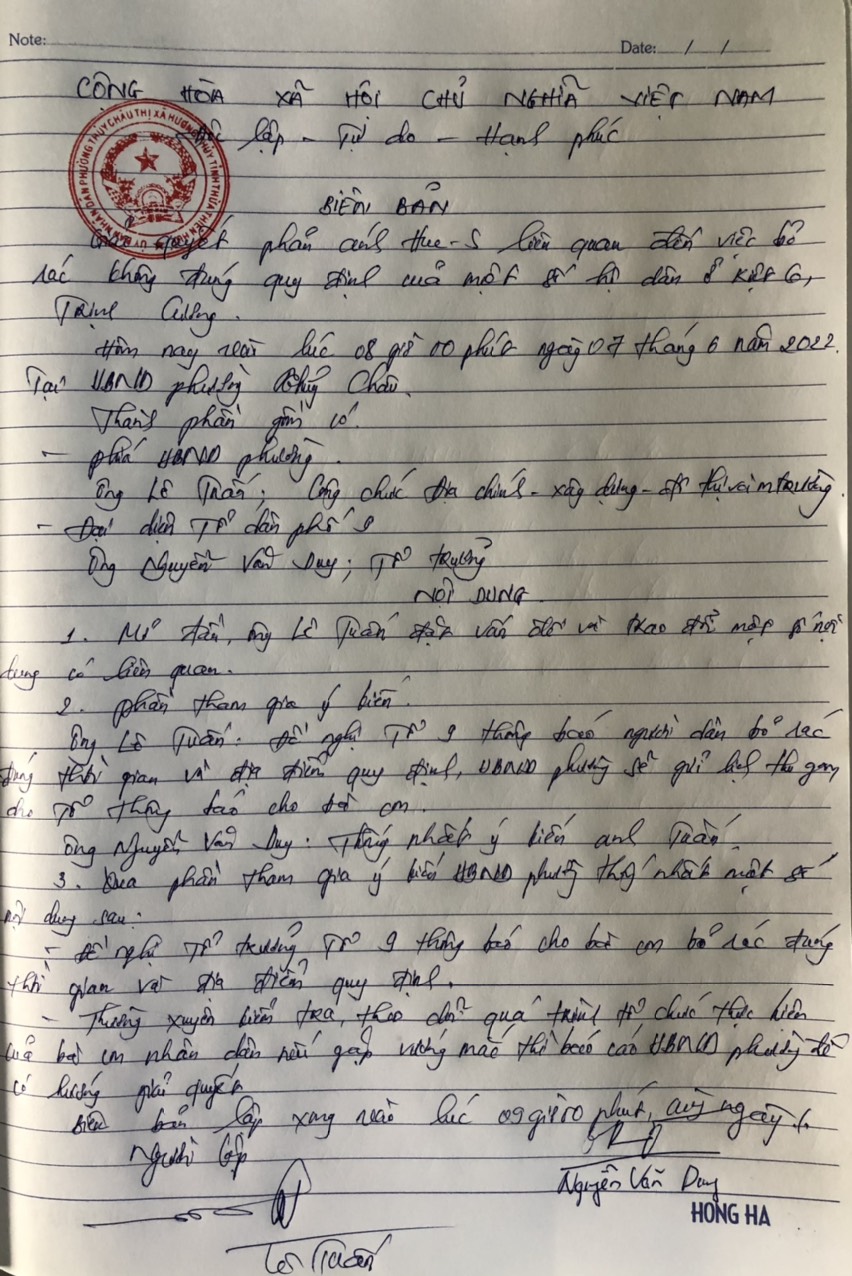 Note:
Date: / /
CỘNG HÒA XÃ HỘI CHỦ NGHĨA VIỆT NAM
Độc lập - Tự do - Hạnh phúc
ỦY BAN NHÂN DÂN PHƯỜNG THỦY CHÂU THỊ XÃ HƯƠNG THỦY TỈNH THỪA THIÊN HUẾ
BIÊN BẢN
Giải quyết phản ánh Hue-S liên quan đến việc bỏ
rác không đúng quy định của một số hộ dân ở kiệt 6,
Trịnh Cương.
Hôm nay vào lúc 08 giờ 00 phút ngày 07 tháng 6 năm 2022.
Tại UBND phường Thủy Châu.
Thành phần gồm có.
- phía UBND phường.
Ông Lê Tuấn; Công chức Địa chính - xây dựng - đô thị và m trường.
- Đại diện Tổ dân phố 9
Ông Nguyễn Văn Duy; Tổ trưởng
NỘI DUNG.
1. Mở đầu, ông Lê Tuấn đặt vấn đề và trao đổi một số nội
dung có liên quan.
2. phần tham gia ý kiến.
Ông Lê Tuấn: Đề nghị Tổ 9 thông báo người dân bỏ rác
đúng thời gian và địa điểm quy định, UBND phường sẽ gửi lịch thu gom
cho Tổ thông báo cho bà con.
Ông Nguyễn Văn Duy: Thống nhất ý kiến anh Tuấn.
3. Qua phần tham gia ý kiến UBND phường thống nhất một số
nội dung sau:
- Đề nghị Tổ trưởng Tổ 9 thông báo cho bà con bỏ rác đúng
thời gian và địa điểm quy định.
- Thường xuyên kiểm tra, theo dõi quá trình tổ chức thực hiện
của bà con nhân dân nếu gặp vướng mắc thì báo cáo UBND phường để
có hướng giải quyết
Biên bản lập xong vào lúc 09 giờ 00 phút, cùng ngày./.
Người lập
Nguyễn Văn Duy
HONG HA
Lê Tuấn